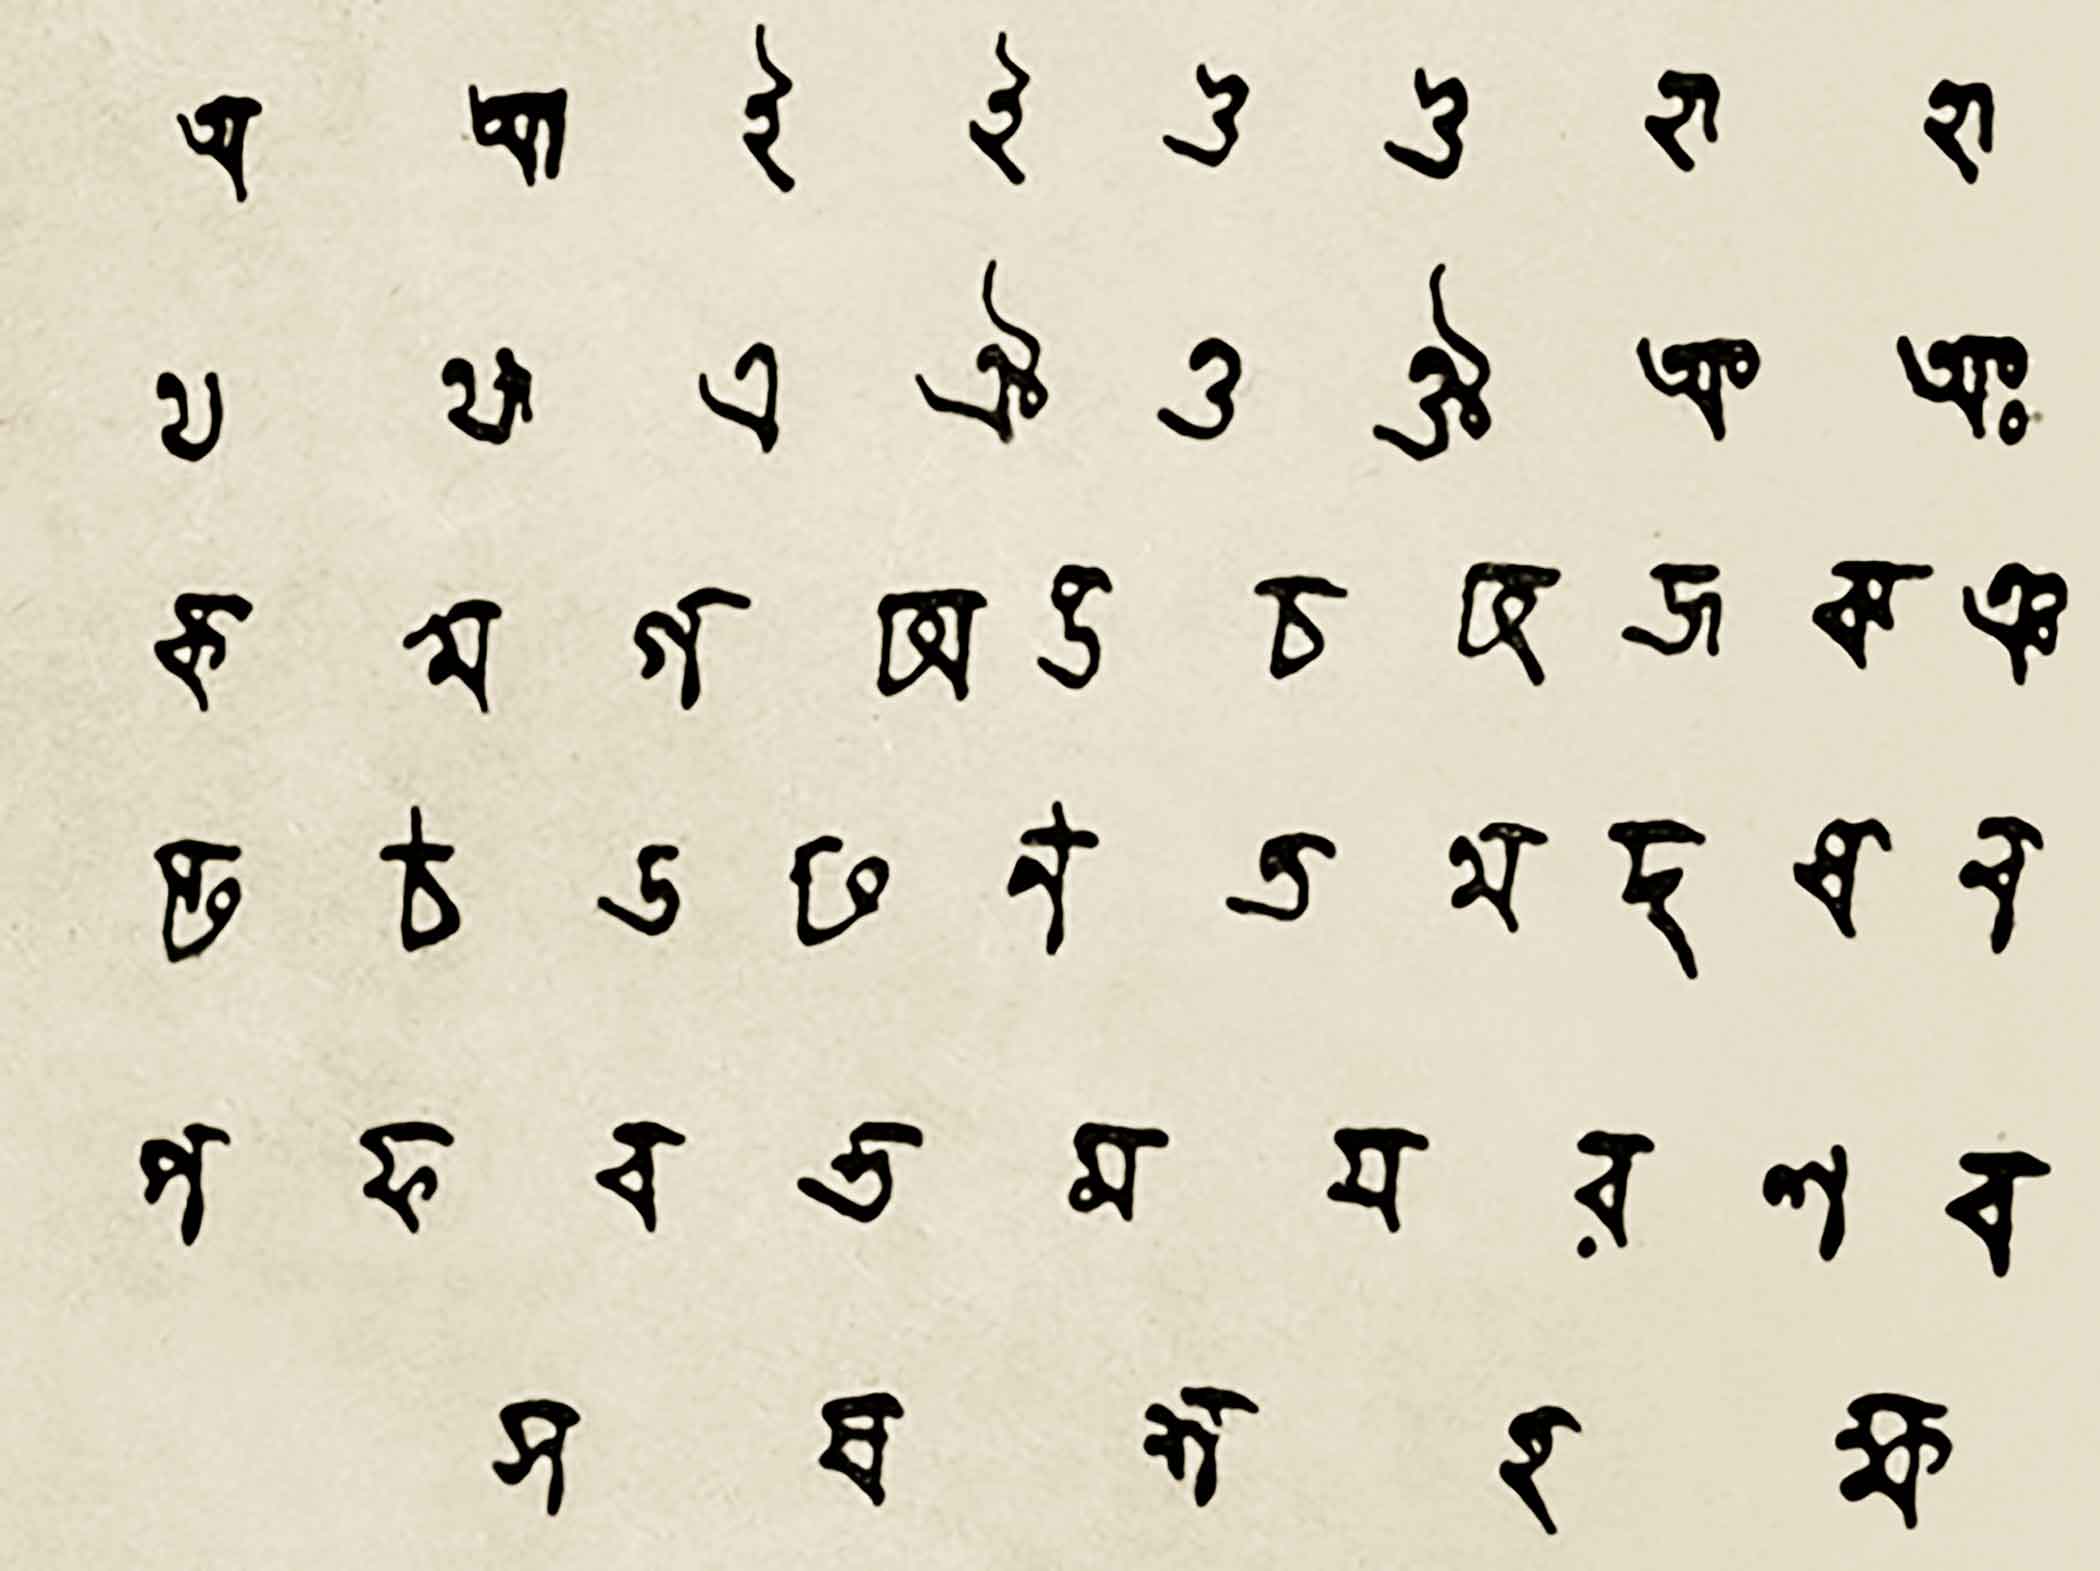 অ আ ই ঈ উ ঊ ঋ ৠ
ঌ ৡ এ ঐ ও ঔ অং অঃ
ক খ গ ঘ ঙ চ ছ জ ঝ ঞ
ট ঠ ড ঢ ণ ত থ দ ধ ন
প ফ ব ভ ম য র ল ব
স ষ শ হ ক্ষ